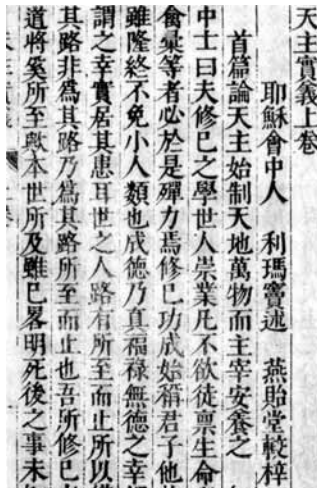 天主實義上卷
耶穌會中人 利瑪竇述 燕貽堂較梓
首篇論天主始制天地萬物而主宰安養之
中士曰夫修己之學世人崇業凡不欲徒稟生命
禽彙等者必於是殫力焉修己功成始稱君子他
雖隆終不免小人類也成德乃真福祿無德之幸
謂之幸實居其患耳世之人路有所至而止所以
其路非爲其路乃爲其路所至而止也吾所修己
道將奚所至歟本世所及雖已畧明死後之事未